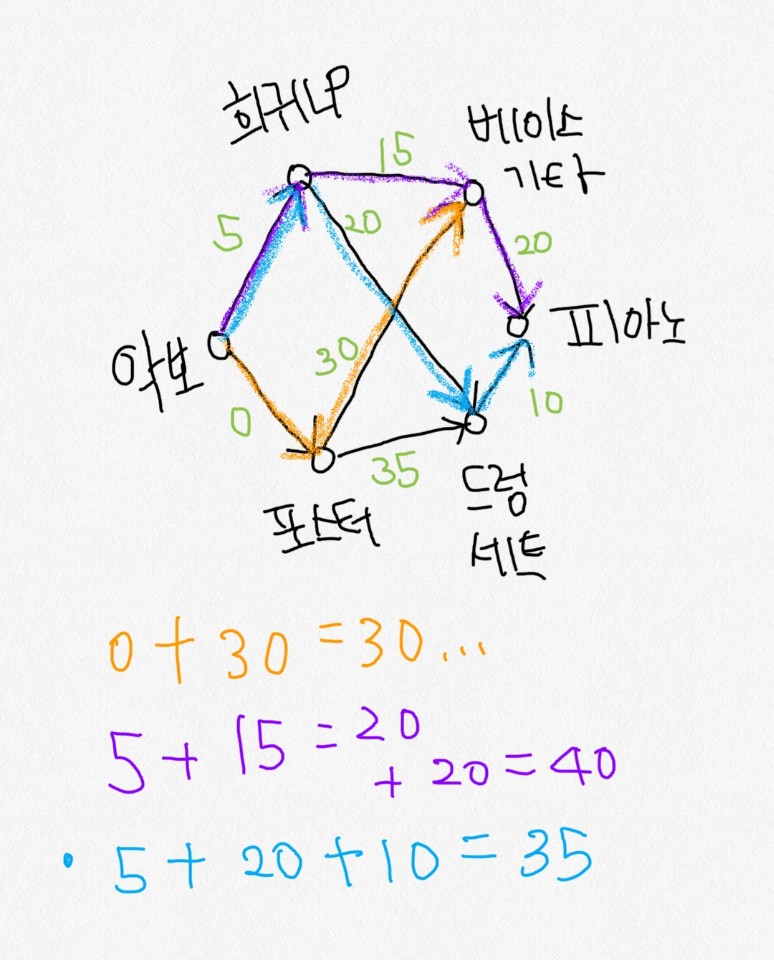 희귀LP
15
베이스
기타
5
20
20
악보
피아노
30
0
10
35
포스터
드럼
세트
0 + 30 = 30 ...
5 + 15 = 20
+ 20 = 40
· 5 + 20 + 10 = 35